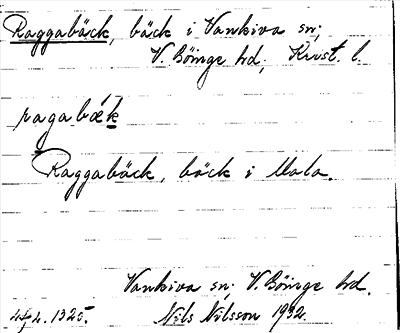 Raggabäck, bäck i Vankiva sn;
V. Göinge hd; Krist. l.
ragabæk
Raggabäck, bäck i Mala.
Vankiva sn; V. Göinge hd.
1325.
Nils Nilsson 1932.